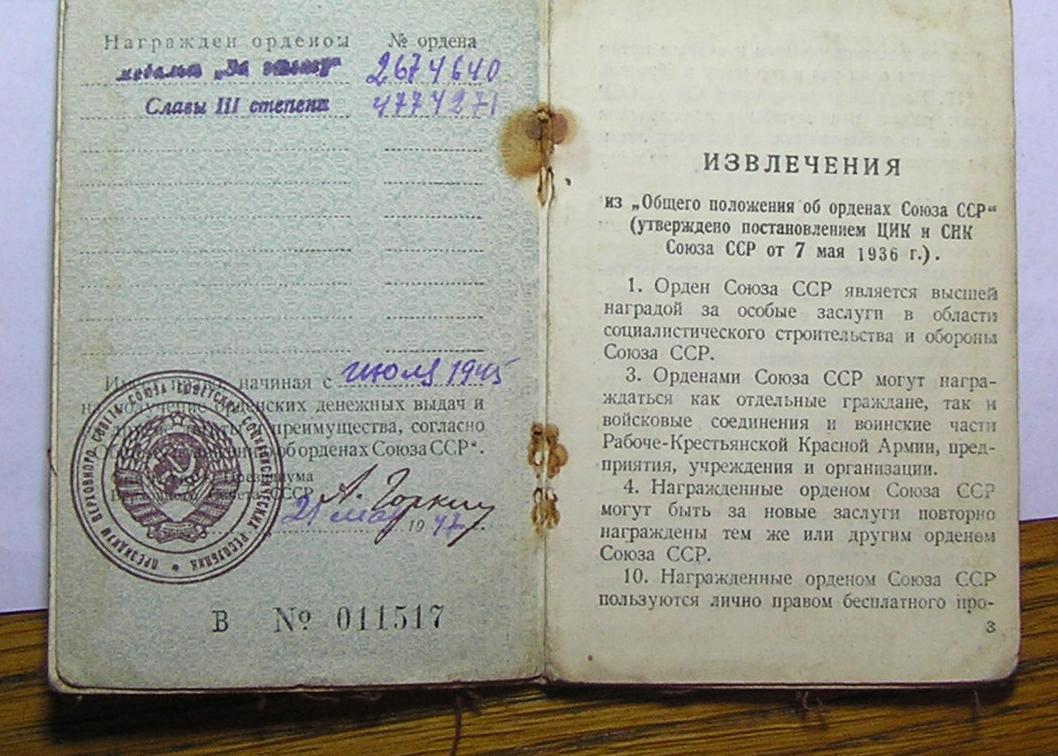 Награжден орденом № ордена
медалью „За отвагу“ 2674640
Славы III степени 4774271
начиная с июля 1945
на получение орденских денежных выдач и
преимущества, согласно
об орденах Союза ССР“.
Президиума
СССР А. Горкин
21 мая 1947 г.
ПРЕЗИДИУМ ВЕРХОВНОГО СОВЕТА СОЮЗА СОВЕТСКИХ СОЦИАЛИСТИЧЕСКИХ РЕСПУБЛИК
В № 011517
ИЗВЛЕЧЕНИЯ
из „Общего положения об орденах Союза ССР“
(утверждено постановлением ЦИК и СНК
Союза ССР от 7 мая 1936 г.).
1. Орден Союза ССР является высшей
наградой за особые заслуги в области
социалистического строительства и обороны
Союза ССР.
3. Орденами Союза ССР могут награ-
ждаться как отдельные граждане, так и
войсковые соединения и воинские части
Рабоче-Крестьянской Красной Армии, пред-
приятия, учреждения и организации.
4. Награжденные орденом Союза ССР
могут быть за новые заслуги повторно
награждены тем же или другим орденом
Союза ССР.
10. Награжденные орденом Союза ССР
пользуются лично правом бесплатного про-
3